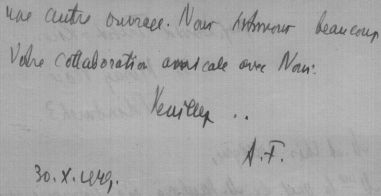 une autre ouvrage. Nous estimons beaucoup
Votre collaboration amicale avec Nous.
Veuillez ..
A.F.
30.X.